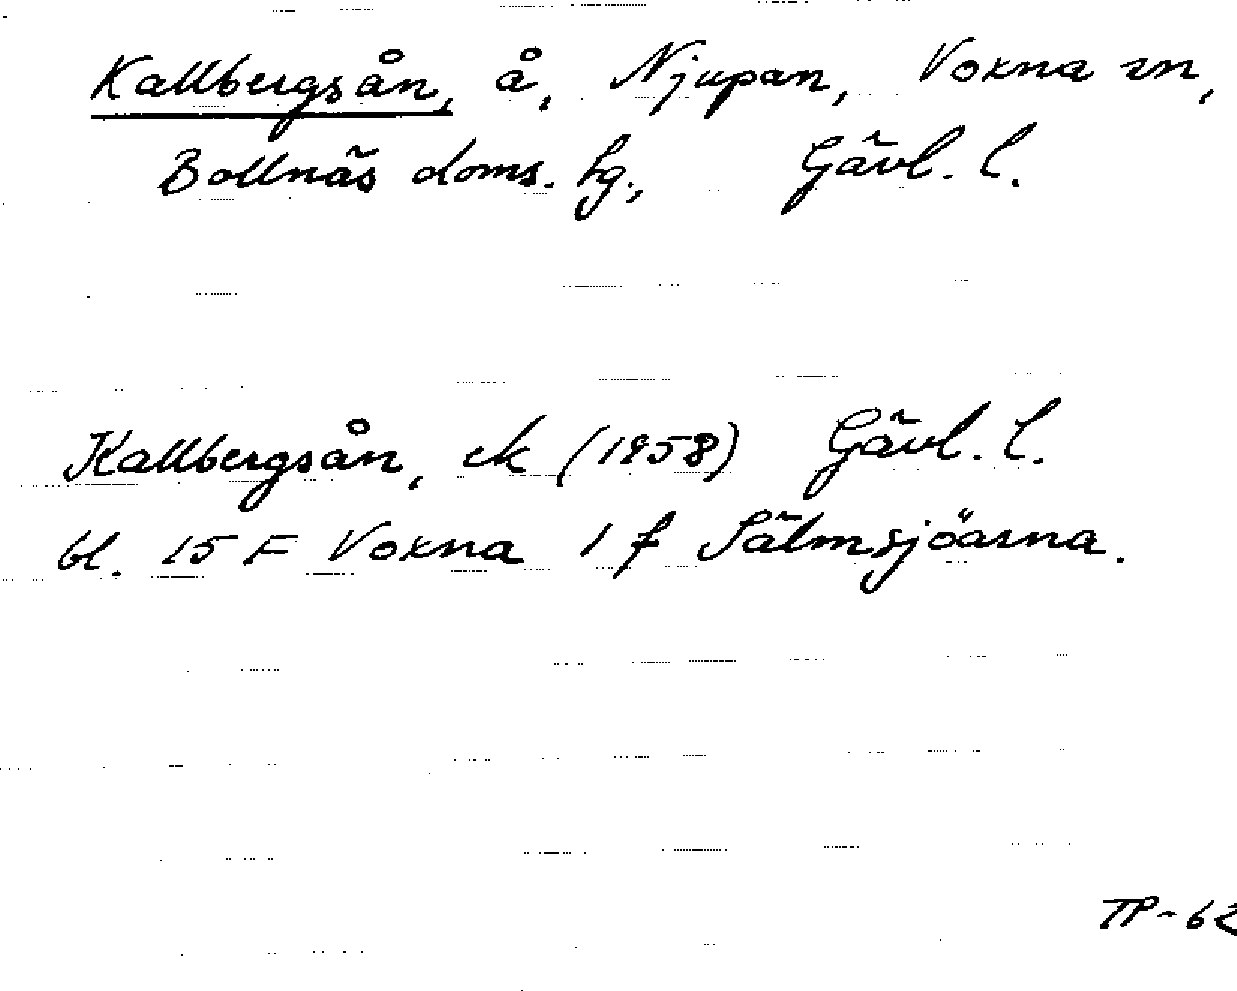 Kallbergsån, å, Njupan, Voxna sn,
Bollnäs doms. hg., Gävl. l.
Kallbergsån, ek (1958) Gävl. l.
bl. 15 F Voxna 1 f Sälmsjöarna.
TP-62